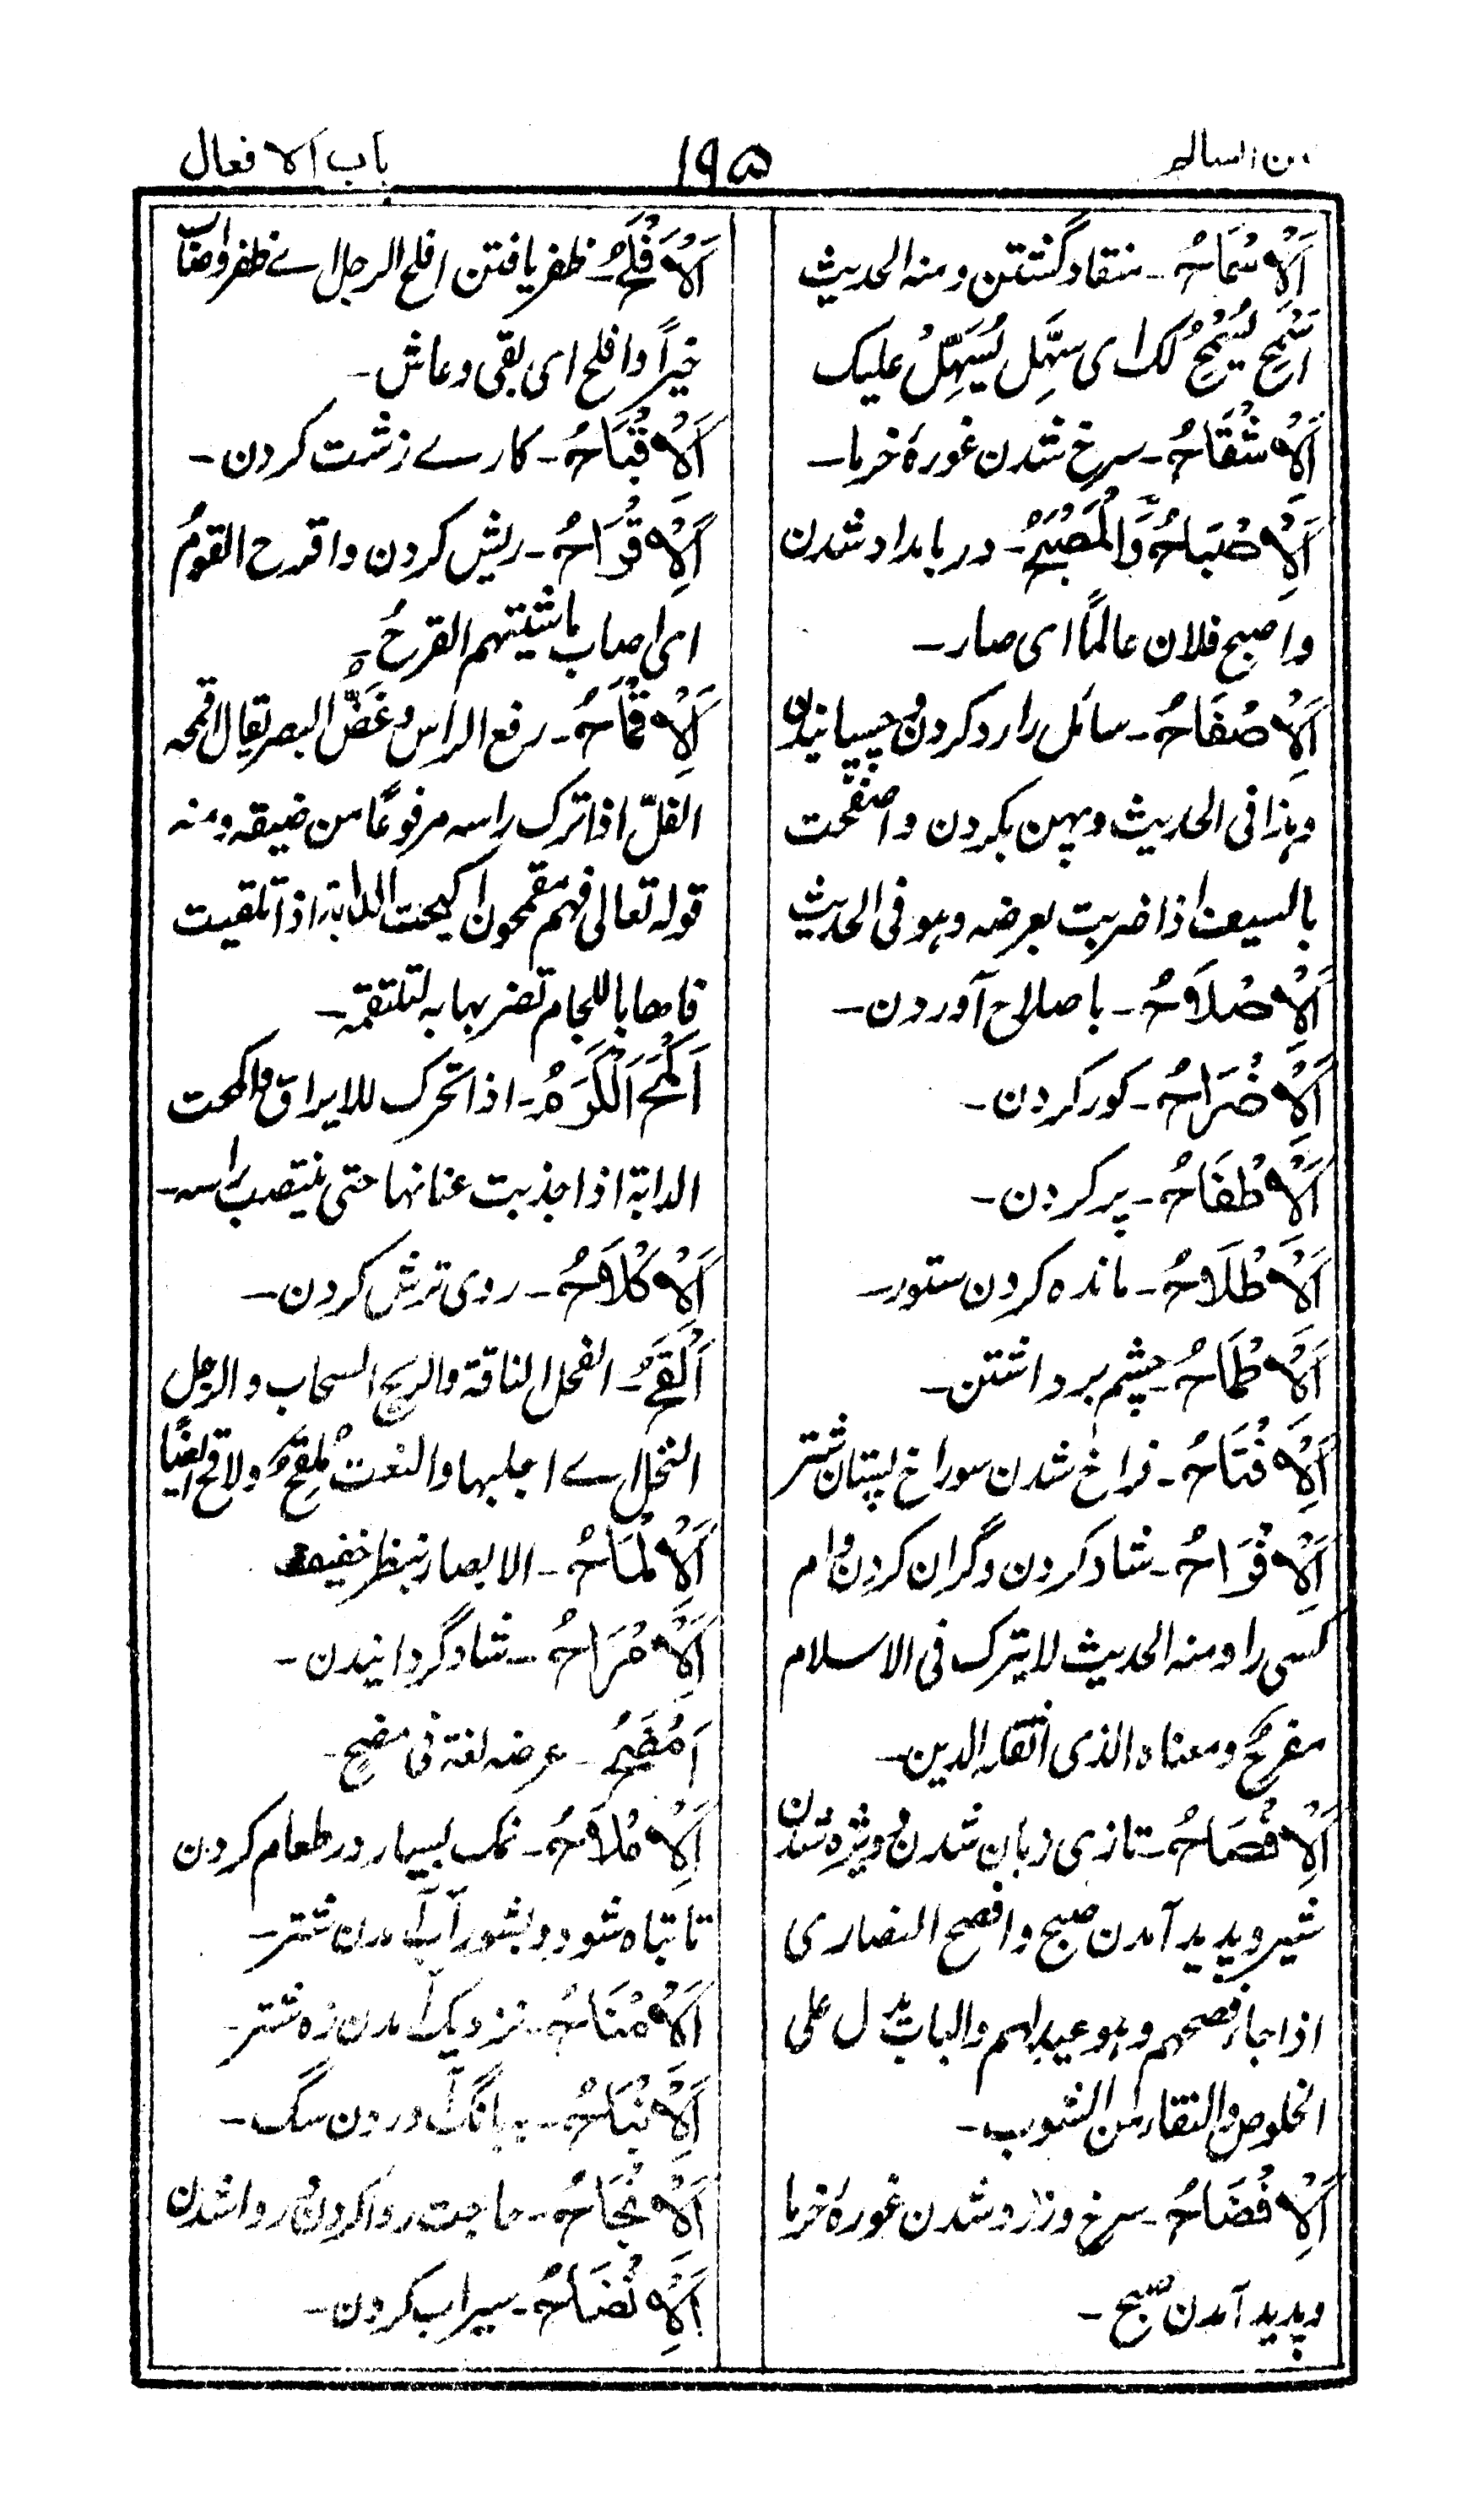 من السالم
۱۹۵
باب الافعال
اَلْاِسْمَاحُ۔ منقاد گشتن ومنه الحدیث
اَسْمِحْ یُسْمَحْ لک ای سَهِّل یُسَهَّلْ علیک
اَلْاِشْقَاحُ۔ سرخ شدن غورهٔ خرما۔
اَلْاِصْبَاحُ وَالْمُصْبَحُ۔ در بامداد شدن
واصبح فلان عالمًا ای صار۔
اَلْاِصْفَاحُ۔ سائل را رد کردن وچسپانیدن
وهذا فی الحدیث وپهن بکردن واصفحت
بالسیف اذا ضربت بعرضه وهو فی الحدیث
اَلْاِصْلَاحُ۔ باصلاح آوردن۔
اَلْاِضْرَاحُ۔ کور کردن۔
اَلْاِطْفَاحُ۔ پر کردن۔
اَلْاِطْلَاحُ۔ مانده کردن ستور۔
اَلْاِطْمَاحُ۔ چشم برداشتن۔
اَلْاِفْتَاحُ۔ فراخ شدن سوراخ پستان شتر
اَلْاِفْرَاحُ۔ شاد کردن وگران کردن وام
کسی را ومنه الحدیث لایترک فی الاسلام
مفرحٌ ومعناه الذی اثقله الدین۔
اَلْاِفْصَاحُ۔ تازی زبان شدن وویژه شدن
شیر وپدید آمدن صبح وافصح النصاری
اذا جاء فصحهم وهو عید لهم والباب یدل علی
الخلوص والنقاء من الشوب۔
اَلْاِفْضَاحُ۔ سرخ وزرد شدن غورهٔ خرما
وپدید آمدن صبح۔
اَلْاِفْلَحُ۔ ظفر یافتن افلح الرجل اے ظفر واصاب
خیراً وافلح ای بقی وعاش۔
اَلْاِقْبَاحُ۔ کارے زشت کردن۔
اَلْاِقْرَاحُ۔ ریش کردن واقرح القومُ
ای اصاب ماشیتهم القرحُ۔
اَلْاِقْمَاحُ۔ رفع الراس وغَضّ البصر یقال اقمحه
الغلّ اذا ترک راسه مرفوعًا من ضیقه ومنه
قوله تعالی فهم مقمحون اکبحت الدابة اذا تلقیت
فاها باللجام تضربها به لتلتقمه۔
اَکْمَحَ اَلْکَرَمُ۔ اذا تحرک للایراق واکمحت
الدابة اذا جذبت عنانها حتی ینتصب راسه۔
اَلْاِکْلَاحُ۔ روی ترش کردن۔
اَلْقَحَ۔ الفحل الناقة والریح السحاب والرجل
النخل اے اجلبها والنعت مُلقِحٌ ولاقح ایضًا
اَلْاِلْمَاحُ۔ الابصار بنظر خفیف
اَلْاِمْرَاحُ۔ شاد گردانیدن۔
اَمْضَحَ۔ عرضه لغة فی مضح۔
اَلْاِمْلَاحُ۔ نمک بسیار در طعام کردن
تا تباه شود وبشور آب آمدن شتر۔
اَلْاِمْنَاحُ۔ نزدیک آمدن زه شتر۔
اَلْاِنْبَاحُ۔ ببانگ آوردن سگ۔
اَلْاِنْجَاحُ۔ حاجت روا کردن وروا شدن
اَلْاِنْضَاحُ۔ سیراب کردن۔